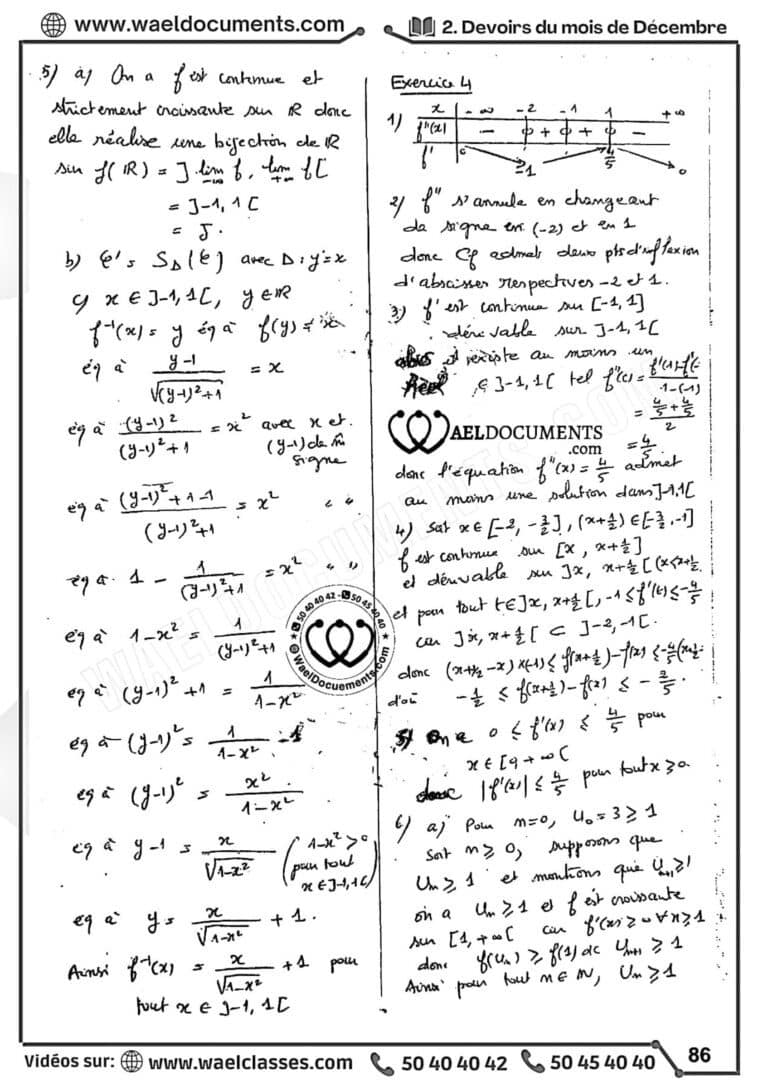 www.waeldocuments.com
2. Devoirs du mois de Décembre
5) a) On a f est continue et
strictement croissante sur ℝ donc
elle réalise une bijection de ℝ
sur f(ℝ) = ]lim f, lim f[
-∞ +∞
= ]-1, 1[
= J.
b) ℰ' = S_Δ(ℰ) avec Δ: y = x
c) x ∈ ]-1, 1[, y ∈ ℝ
f⁻¹(x) = y éq à f(y) = x
éq à (y-1)/√((y-1)²+1) = x
éq à (y-1)²/((y-1)²+1) = x² avec x et
(y-1) de m̂
signe
éq à ((y-1)²+1-1)/((y-1)²+1) = x² " "
éq à 1 - 1/((y-1)²+1) = x² " "
éq à 1-x² = 1/((y-1)²+1)
éq à (y-1)²+1 = 1/(1-x²)
éq à (y-1)² = 1/(1-x²) - 1
éq à (y-1)² = x²/(1-x²)
éq à y-1 = x/√(1-x²) (1-x² > 0
pour tout
x ∈ ]-1,1[)
éq à y = x/√(1-x²) + 1.
Ainsi f⁻¹(x) = x/√(1-x²) + 1 pour
tout x ∈ ]-1, 1[
Exercice 4
1) x -∞ -2 -1 1 +∞
f''(x) - 0 + 0 + 0 -
f' 0 -1 4/5 0
2) f'' s'annule en changeant
de signe en (-2) et en 1
donc Cf admet deux pts d'inflexion
d'abscisses respectives -2 et 1.
3) f' est continue sur [-1, 1]
dérivable sur ]-1, 1[
il existe au moins un
∈ ]-1, 1[ tel f''(c) =
1-(-1)
= (4/5 + 4/5)/2
= 4/5
WAELDOCUMENTS
.com
donc l'équation f''(x) = 4/5 admet
au moins une solution dans ]-1,1[
4) Soit x ∈ [-2, -3/2], (x+1/2) ∈ [-3/2, -1]
f est continue sur [x, x+1/2]
et dérivable sur ]x, x+1/2[ (x<x+1/2
et pour tout t ∈ ]x, x+1/2[, -1 ≤ f'(t) ≤ -4/5
car ]x, x+1/2[ ⊂ ]-2, -1[.
donc (x+1/2-x)×(-1) ≤ f(x+1/2)-f(x) ≤ -4/5(x+1/2-
d'où -1/2 ≤ f(x+1/2)-f(x) ≤ -2/5.
5) On a 0 ≤ f'(x) ≤ 4/5 pour
x ∈ [1, +∞[
donc |f'(x)| ≤ 4/5 pour tout x ≥
6) a) Pour n=0, U₀ = 3 ≥ 1
Soit n ≥ 0, supposons que
Uₙ ≥ 1 et montrons que Uₙ₊₁ ≥ 1
on a Uₙ ≥ 1 et f est croissante
sur [1, +∞[ car f'(x) ≥ 0 ∀ x ≥ 1
donc f(Uₙ) ≥ f(1) dc Uₙ₊₁ ≥ 1
Ainsi pour tout n ∈ ℕ, Uₙ ≥ 1
50 40 40 42 - 50 45 40 40
WaelDocuements.com
WAELDOCUMENTS.COM
Vidéos sur: www.waelclasses.com 50 40 40 42 50 45 40 40
86